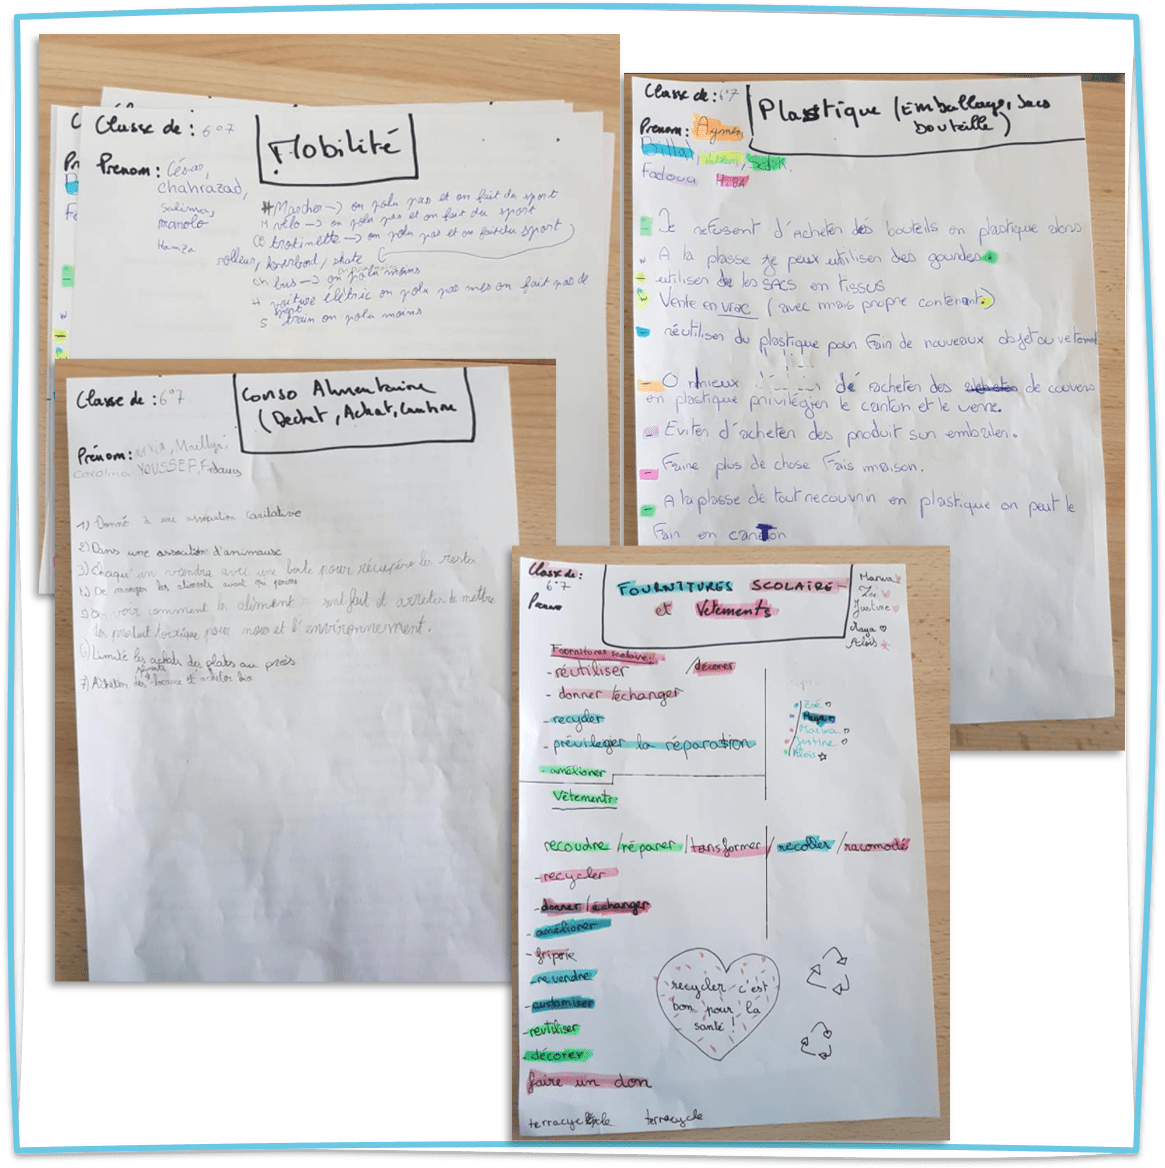 Classe de : 6°7
Mobilité
Prénom : César,
chahrazad,
Salimas
manolo
Hamza
# Marcher -> on polu pas et on fait du sport
H vélo -> on polu pas et on fait du sport
trotinette -> on polu pas et on fait du sport
rolleur, hoverbord, skate
ch bus -> on polu moins
H voiture élétric on polu pas mes on fait pas de
sport
S train on polu moins
Classe de : 6°7
Plastique (Emballage, Sacs
bouteille)
Prénom : Aymen,
Billal,
Fadoua HIBA
- Je refusent d'acheter des bouteils en plastique alors
A la plasse je peux utiliser des gourdes
- utiliser de los SACS en tissus
Vente en vrac (avec mais propre contenant.)
- réutiliser du plastique pour Fair de nouveaux objet ou vetement
- O mieux dé racheter des de couvers
en plastique privilégier le carton et le verre.
- Eviter d'acheter des produit sur embaler.
- Faire plus de chose Fais maison.
- A la plasse de tout recouvrir en plastique on peut le
Fair en carton
Classe de : 6°7
Conso Alimentaire
(Dechet, Achat, Cantine
Prénom : Maellya
Carolina YOUSSEF, Firdaws
1) Donné à une association caritative
2) Dans une assocition d'animause
3) Chaqu'un viendra avec une boite pour récupére les restes
4) De manger les aliments avant qui périme
5) On voir comment les aliment sont fait et arreter de mettre
des produit toxique pour nous et l'environnement.
6) Limité les achats des plats au près
7) Acheter des produits locaux et acheter bio
Classe de :
6°7
Prenom
FOURNITURES SCOLAIRE
et Vetements
Marwa
Zoé
Justine
Maya
Aloïs
Fournitures scolaire :
- réutiliser / décorer
- donner / échanger
- recycler
- prévileger la réparation
- améliorer
Zoé
Maya
Marwa
Justine
Aloïs
Vêtements :
recoudre / réparer / transformer / recoller / racomodé
- recycler
- donner / échanger
- améliorer
- friperie
- revendre
- customiser
- reutiliser
- décorer
faire un don
recycler c'est
bon pour la
santé !
terracycle